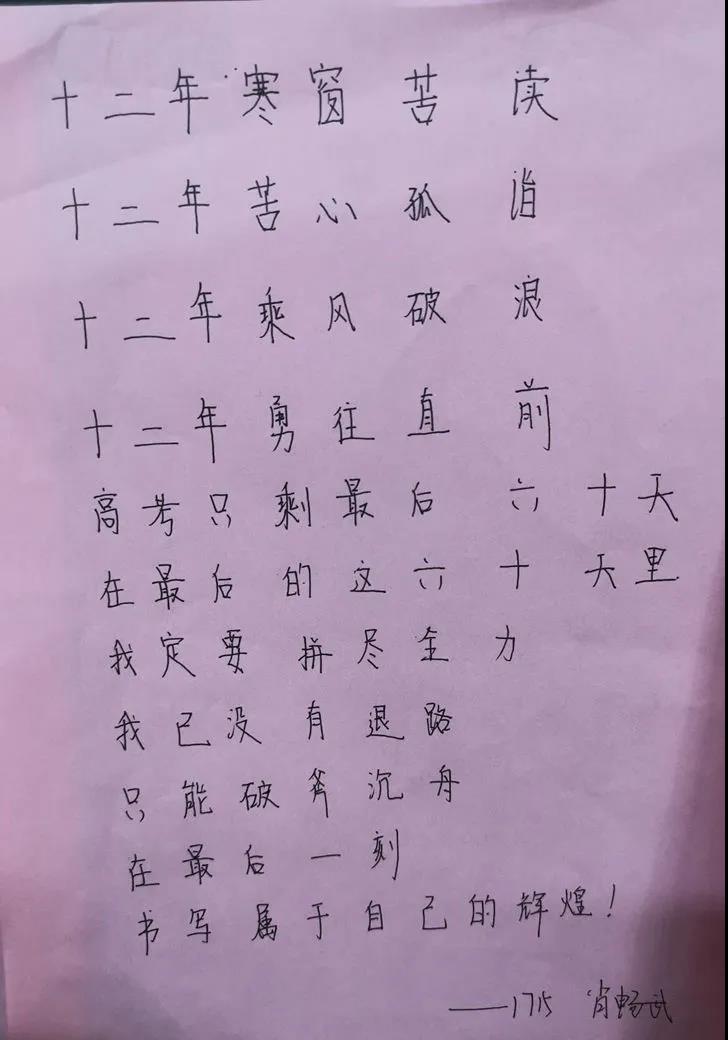 十二年寒窗苦读
十二年苦心孤诣
十二年乘风破浪
十二年勇往直前
高考只剩最后六十天
在最后的这六十天里
我定要拼尽全力
我已没有退路
只能破斧沉舟
在最后一刻
书写属于自己的辉煌!
——1715 肖畅武